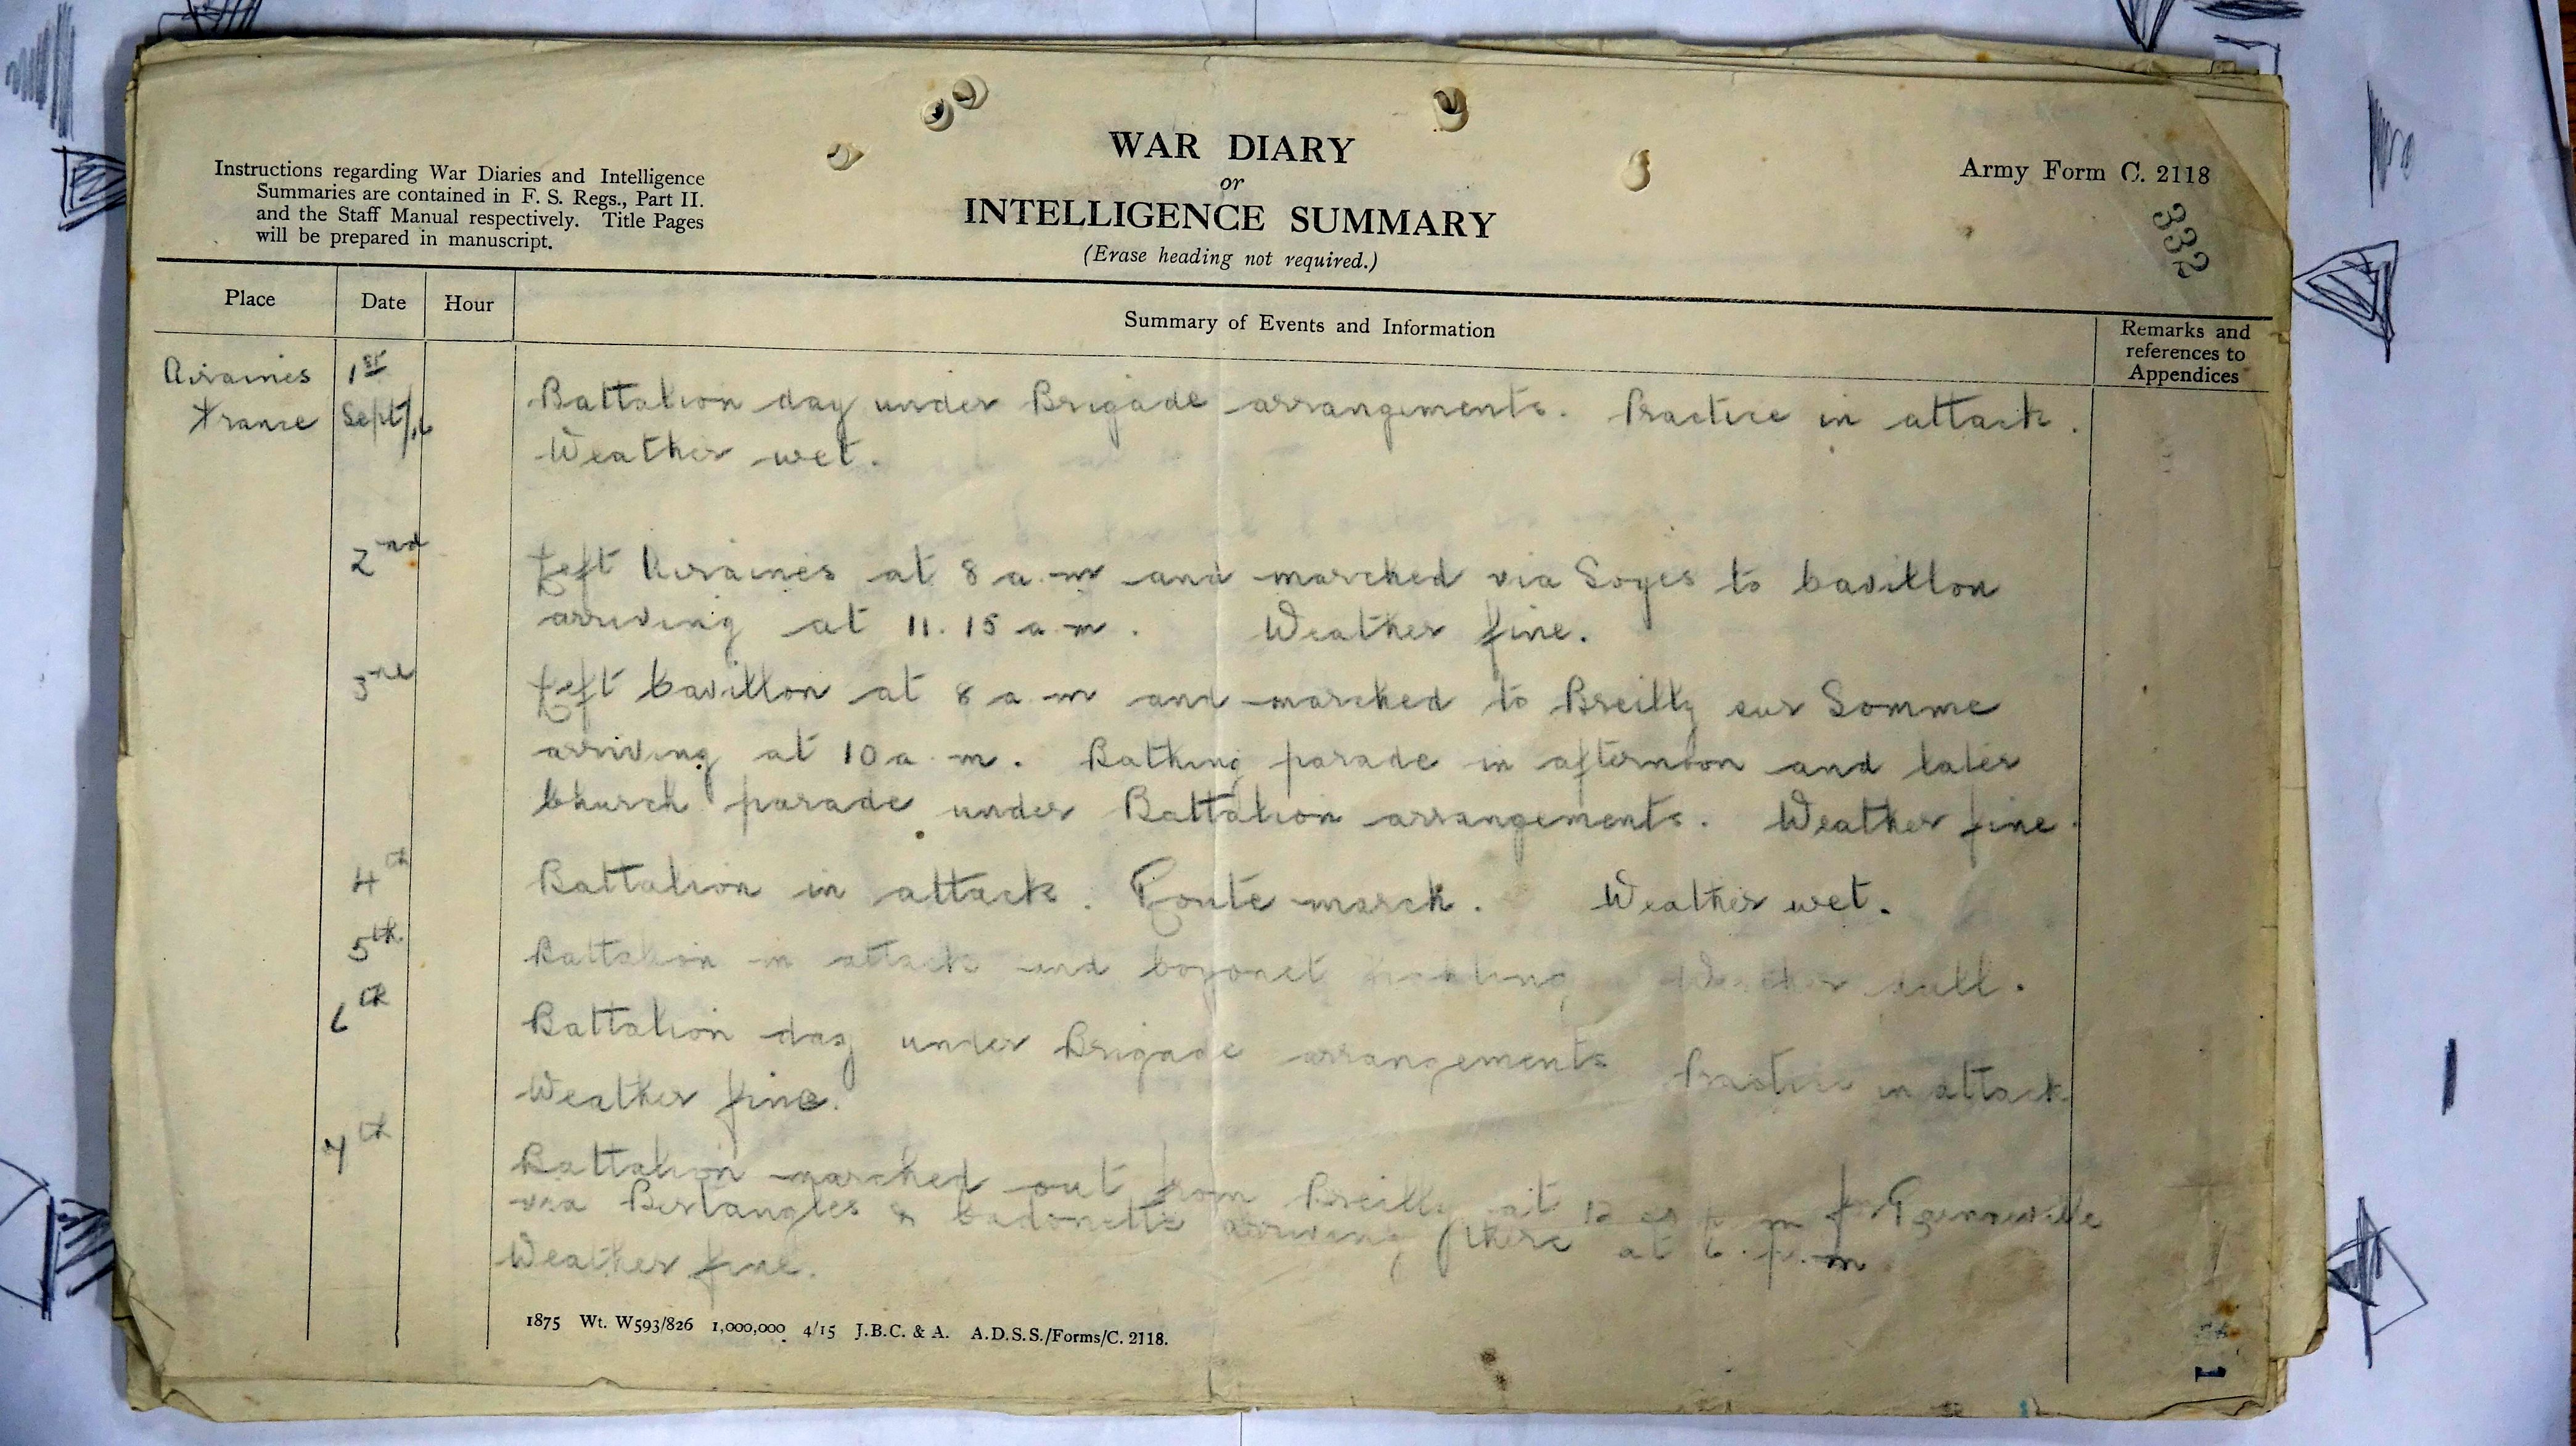 WAR DIARY
or
INTELLIGENCE SUMMARY
(Erase heading not required.)
Instructions regarding War Diaries and Intelligence
Summaries are contained in F. S. Regs., Part II.
and the Staff Manual respectively. Title Pages
will be prepared in manuscript.
Army Form C. 2118
332
Place Date Hour Summary of Events and Information Remarks and references to Appendices
Airaines 1st
France Sept/16 Battalion day under Brigade arrangements. Practice in attack.
Weather wet.
2nd Left Airaines at 8 a.m and marched via Soyes to Cavillon
arriving at 11.15 a.m. Weather fine.
3rd Left Cavillon at 8 a.m and marched to Breilly sur Somme
arriving at 10 a.m. Bathing parade in afternoon and later
Church parade under Battalion arrangements. Weather fine.
4th Battalion in attack. Route march. Weather wet.
5th Battalion in attack and bayonet Weather dull.
6th Battalion day under Brigade arrangements Practice in attack
Weather fine.
7th Battalion marched out from Breilly at 12 p m for
via Bertangles & Cardonette arriving there at 6.p.m
Weather fine.
1875 Wt. W593/826 1,000,000 4/15 J.B.C. & A. A.D.S.S./Forms/C. 2118.